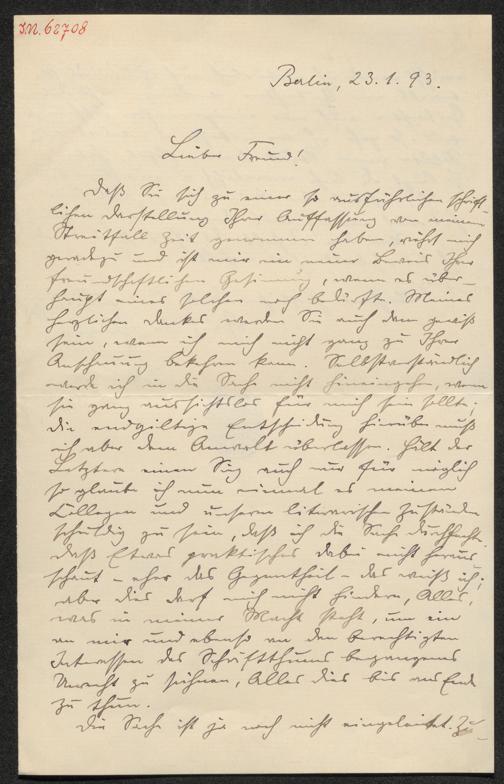 I.N. 62708
Berlin, 23.1.93.
Lieber Freund!
Daß Sie sich zu einer so ausführlichen schrift-
lichen Darstellung Ihrer Auffassung von meinem
Streitfall Zeit genommen haben, rührt mich
geradezu und ist mir ein neuer Beweis Ihrer
freundschaftlichen Gesinnung, wenn es über-
haupt eines solchen noch bedürfte. Meines
herzlichen Dankes werden Sie auch dann gewiß
sein, wenn ich mich nicht ganz zu Ihrer
Anschauung bekehren kann. Selbstverständlich
werde ich in die Sache nicht hineingehen, wenn
sie ganz aussichtslos für mich sein sollte;
die endgiltige Entscheidung hierüber muß
ich aber dem Anwalt überlassen. Hält der
Letztere einen Sieg auch nur für möglich
so glaube ich nun einmal es meinen
Collegen und unseren literarischen Zuständen
schuldig zu sein, daß ich die Sache durchfechte.
Daß Etwas praktisches dabei nicht heraus
schaut – eher das Gegentheil – das weiß ich;
aber dies darf mich nicht hindern, Alles,
was in meiner Macht steht, um ein
an mir und ebenso an den berechtigten
Interessen des Schriftthums begangenes
Unrecht zu sühnen, Alles dies bis ans Ende
zu thun.
Die Sache ist ja noch nicht eingeleitet. Zu